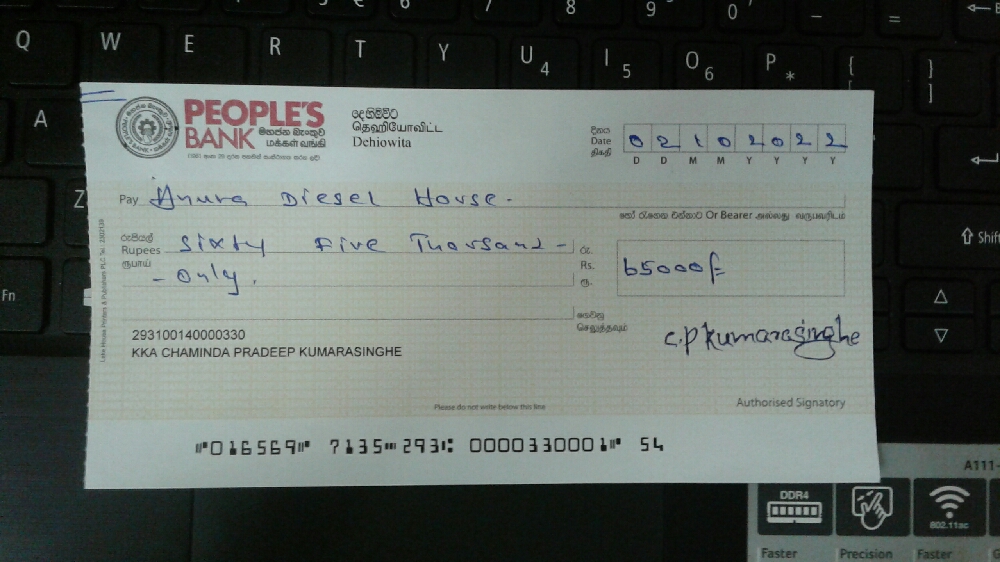 Q W E R T Y U 4 I 5 O 6 P * { [ } ]
7 8 9 0 _ =
A
Z
Fn
Shift
PEOPLE'S
BANK මහජන බැංකුව
மக்கள் வங்கி
දෙහිඕවිට
தெஹியோவிட்ட
Dehiowita
දිනය
Date
திகதி
0 2 1 0 2 0 2 2
D D M M Y Y Y Y
Pay Anura Diesel House -
හෝ රැගෙන එන්නාට Or Bearer அல்லது வருபவரிடம்
රුපියල්
Rupees Sixty Five Thousand -
ரூபாய் - only.
රු.
Rs. 65000/=
ரூ.
ගෙවනු
செலுத்தவும்
293100140000330
KKA CHAMINDA PRADEEP KUMARASINGHE
c.p kumarasinghe
Please do not write below this line
Authorised Signatory
⑈016569⑈ 7135⑉293⑆ 0000330001⑈ 54
Lake House Printers & Publishers PLC
A111-
DDR4
802.11ac
Faster Precision Faster